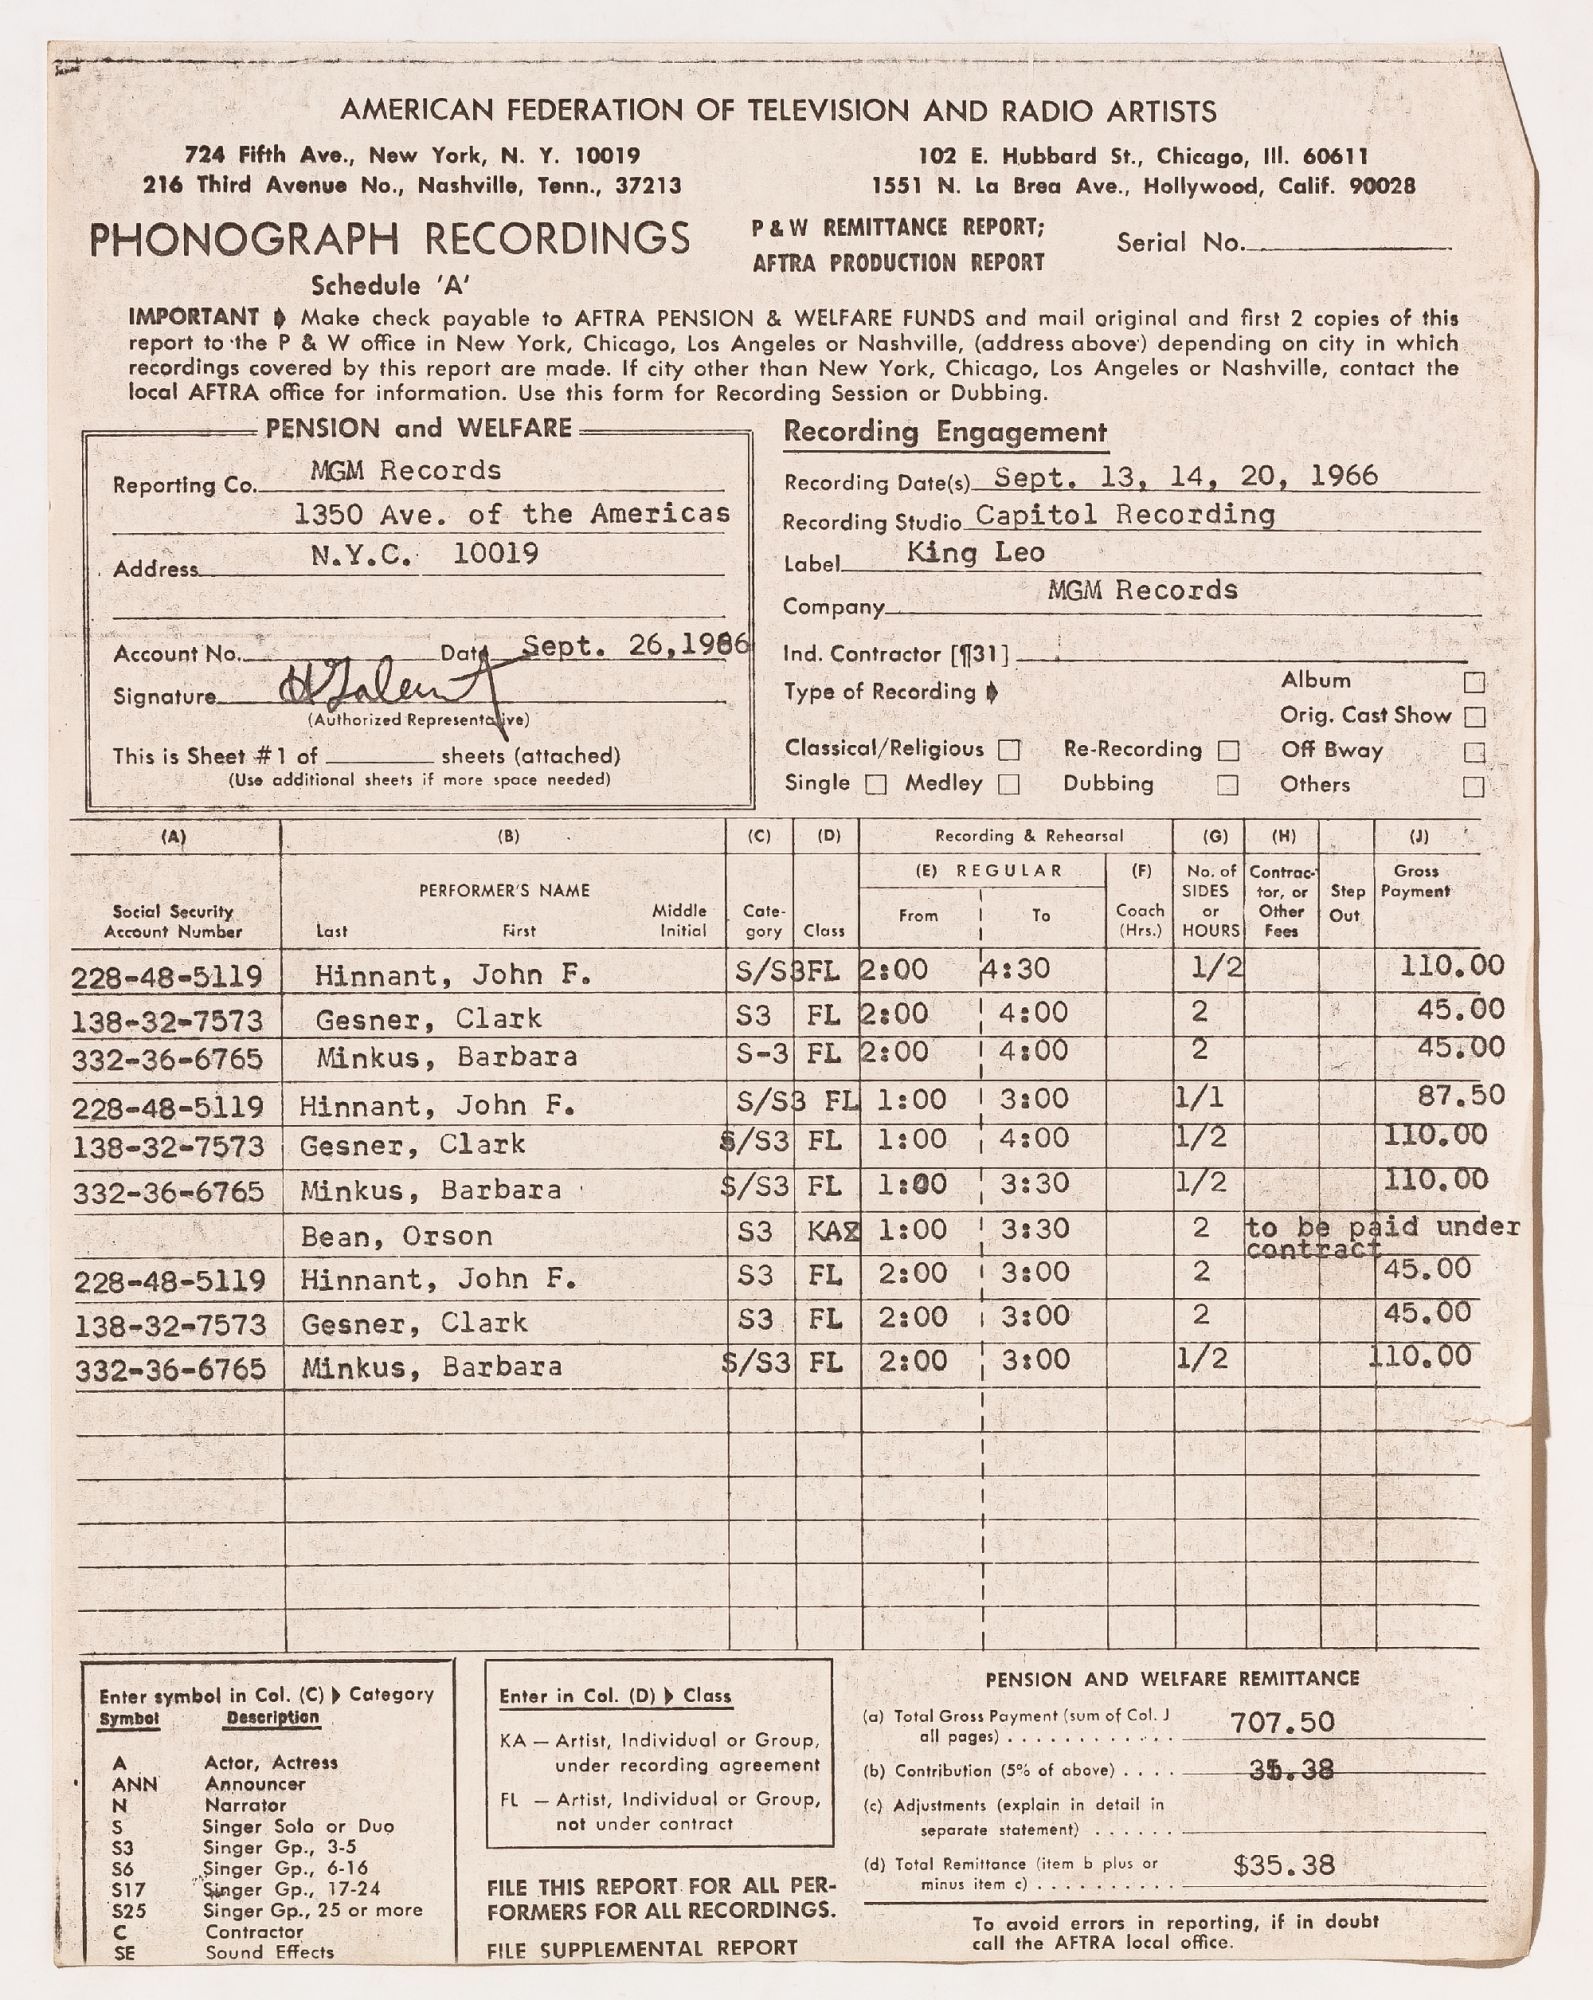 AMERICAN FEDERATION OF TELEVISION AND RADIO ARTISTS
724 Fifth Ave., New York, N. Y. 10019
102 E. Hubbard St., Chicago, Ill. 60611
216 Third Avenue No., Nashville, Tenn., 37213
1551 N. La Brea Ave., Hollywood, Calif. 90028
PHONOGRAPH RECORDINGS
Schedule 'A'
P & W REMITTANCE REPORT;
AFTRA PRODUCTION REPORT
Serial No.
IMPORTANT Make check payable to AFTRA PENSION & WELFARE FUNDS and mail original and first 2 copies of this
report to the P & W office in New York, Chicago, Los Angeles or Nashville, (address above) depending on city in which
recordings covered by this report are made. If city other than New York, Chicago, Los Angeles or Nashville, contact the
local AFTRA office for information. Use this form for Recording Session or Dubbing.
PENSION and WELFARE
Reporting Co. MGM Records
1350 Ave. of the Americas
Address N.Y.C. 10019
Account No. Date Sept. 26,1966
Signature
(Authorized Representative)
This is Sheet #1 of sheets (attached)
(Use additional sheets if more space needed)
Recording Engagement
Recording Date(s) Sept. 13, 14, 20, 1966
Recording Studio Capitol Recording
Label King Leo
Company MGM Records
Ind. Contractor [¶31]
Type of Recording
Album
Orig. Cast Show
Classical/Religious Re-Recording Off Bway
Single Medley Dubbing Others
(A) (B) (C) (D) Recording & Rehearsal (G) (H) (J)
(E) REGULAR (F)
Social Security
Account Number
PERFORMER'S NAME
Last First Middle
Initial
Cate-
gory
Class
From To
Coach
(Hrs.)
No. of
SIDES
or
HOURS
Contrac-
tor, or
Other
Fees
Step
Out
Gross
Payment
228-48-5119 Hinnant, John F. S/S3 FL 2:00 4:30 1/2 110.00
138-32-7573 Gesner, Clark S3 FL 2:00 4:00 2 45.00
332-36-6765 Minkus, Barbara S-3 FL 2:00 4:00 2 45.00
228-48-5119 Hinnant, John F. S/S3 FL 1:00 3:00 1/1 87.50
138-32-7573 Gesner, Clark S/S3 FL 1:00 4:00 1/2 110.00
332-36-6765 Minkus, Barbara S/S3 FL 1:00 3:30 1/2 110.00
Bean, Orson S3 KA 1:00 3:30 2 to be paid under
contract
228-48-5119 Hinnant, John F. S3 FL 2:00 3:00 2 45.00
138-32-7573 Gesner, Clark S3 FL 2:00 3:00 2 45.00
332-36-6765 Minkus, Barbara S/S3 FL 2:00 3:00 1/2 110.00
Enter symbol in Col. (C) Category
Symbol Description
A Actor, Actress
ANN Announcer
N Narrator
S Singer Solo or Duo
S3 Singer Gp., 3-5
S6 Singer Gp., 6-16
S17 Singer Gp., 17-24
S25 Singer Gp., 25 or more
C Contractor
SE Sound Effects
Enter in Col. (D) Class
KA — Artist, Individual or Group,
under recording agreement
FL — Artist, Individual or Group,
not under contract
FILE THIS REPORT FOR ALL PER-
FORMERS FOR ALL RECORDINGS.
FILE SUPPLEMENTAL REPORT
PENSION AND WELFARE REMITTANCE
(a) Total Gross Payment (sum of Col. J
all pages) . . . . . . . . . . . . 707.50
(b) Contribution (5% of above) . . . . 35.38
(c) Adjustments (explain in detail in
separate statement) . . . . . .
(d) Total Remittance (item b plus or
minus item c) . . . . . . . . . . $35.38
To avoid errors in reporting, if in doubt
call the AFTRA local office.